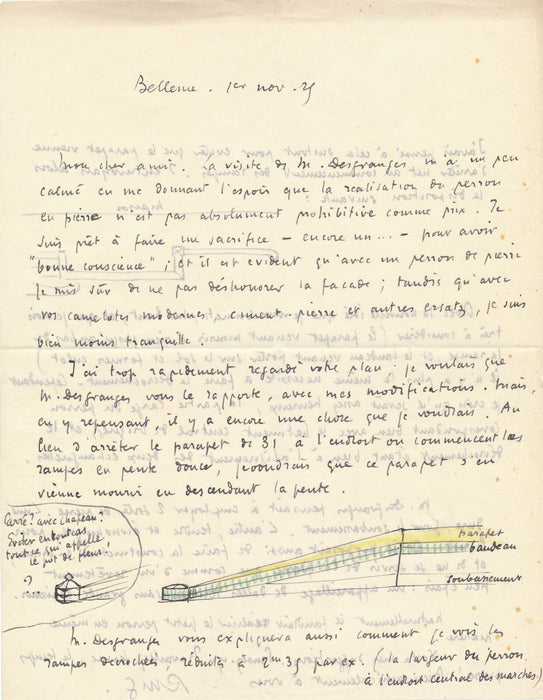 Bellême. 1er nov. 25
Mon cher ami. La visite de M. Desgranges m'a un peu
calmé en me donnant l'espoir que la réalisation du perron
en pierre n'est pas absolument prohibitive comme prix. Je
suis prêt à faire un sacrifice – encore un... – pour avoir
"bonne conscience" ; et il est évident qu'avec un perron de pierre
je suis sûr de ne pas déshonorer la façade ; tandis qu'avec
vos camelotes modernes, ciment-pierre et autres ersatz, je suis
bien moins tranquille !
J'ai trop rapidement regardé votre plan ; je voulais que
M. Desgranges vous le rapporte, avec mes modifications. Mais,
en y repensant, il y a encore une chose que je voudrais. Au
lieu d'arrêter le parapet de 35 à l'endroit où commencent les
rampes en pente douce, je voudrais que ce parapet s'en
vienne mourir en descendant la pente.
Carré ? avec chapeau ?
Éviter en tout cas
tout ce qui appelle
le pot de fleur.
? ..
parapet
bandeau
soubassement
M. Desgranges vous expliquera aussi comment je vois les
rampes décrochées, réduites à 2m35 par ex. (la largeur du perron
à l'endroit central des marches).